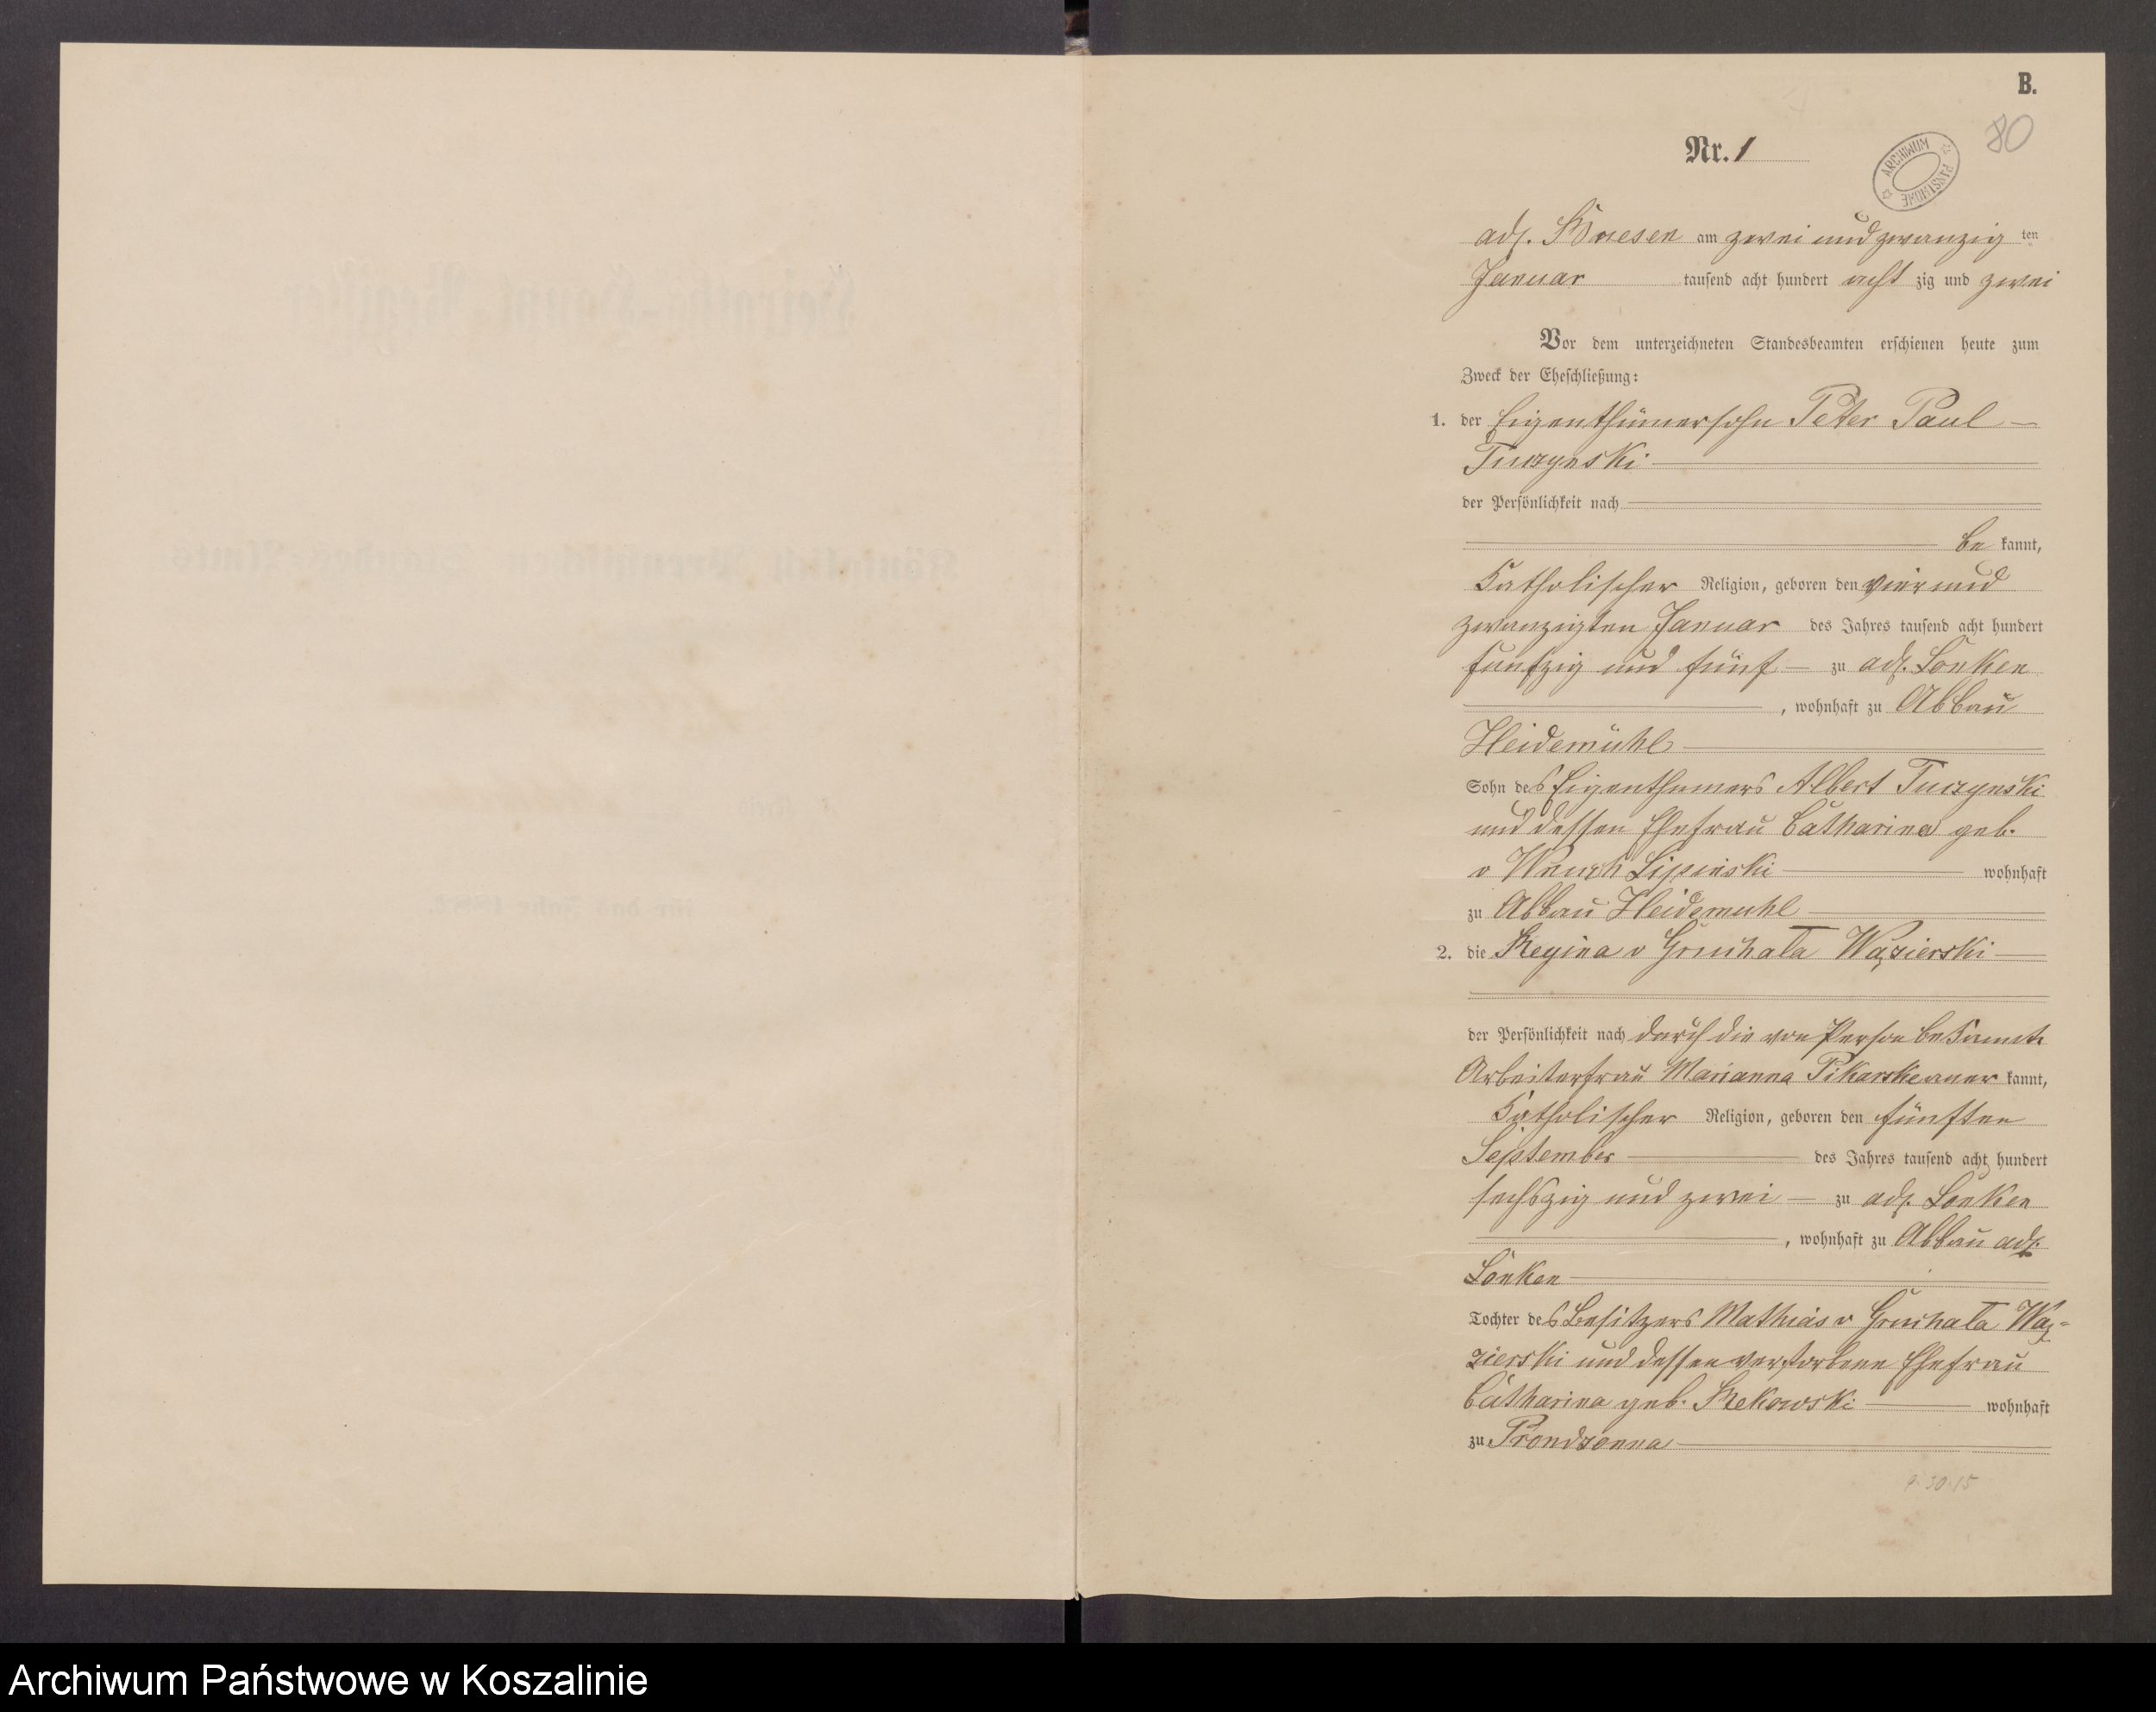 B.
80
Nr. 1
ARCHIWUM PAŃSTWOWE
adl. Briesen am zwei und zwanzig ten
Januar tausend acht hundert acht zig und zwei
Vor dem unterzeichneten Standesbeamten erschienen heute zum
Zweck der Eheschließung:
1. der Eigenthümersohn Peter Paul
Turzynski
der Persönlichkeit nach
be kannt,
Katholischer Religion, geboren den vier und
zwanzigten Januar des Jahres tausend acht hundert
funfzig und fünf zu adl. Lonken
, wohnhaft zu Abbau
Heidemühl
Sohn des Eigenthümers Albert Turzynski
und dessen Ehefrau Catharina geb.
v Wnuck Lipinski wohnhaft
zu Abbau Heidemühl
2. die Regina v Gruchala Wazierski
der Persönlichkeit nach durch die von Person bekannte
Arbeiterfrau Marianna Pikarske aner kannt,
Katholischer Religion, geboren den fünften
September des Jahres tausend acht hundert
sechszig und zwei zu adl. Lonken
, wohnhaft zu Abbau adl.
Lonken
Tochter des Besitzers Mathias v Gruchala Wa-
zierski und dessen verstorbene Ehefrau
Catharina geb. Rekowski wohnhaft
zu Prondzonna
Archiwum Państwowe w Koszalinie